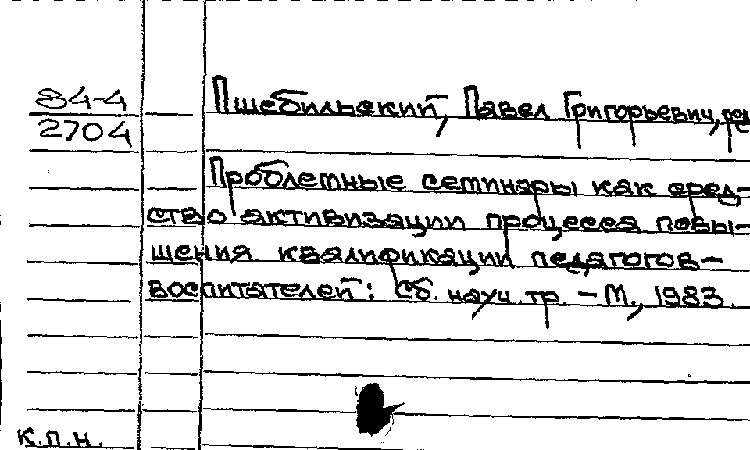 84-4
2704
Пшебильский, Павел Григорьевич, ред
Проблемные семинары как сред-
ство активизации процесса повы-
шения квалификации педагогов-
воспитателей: Сб. науч. тр. - М., 1983.
к.п.н.